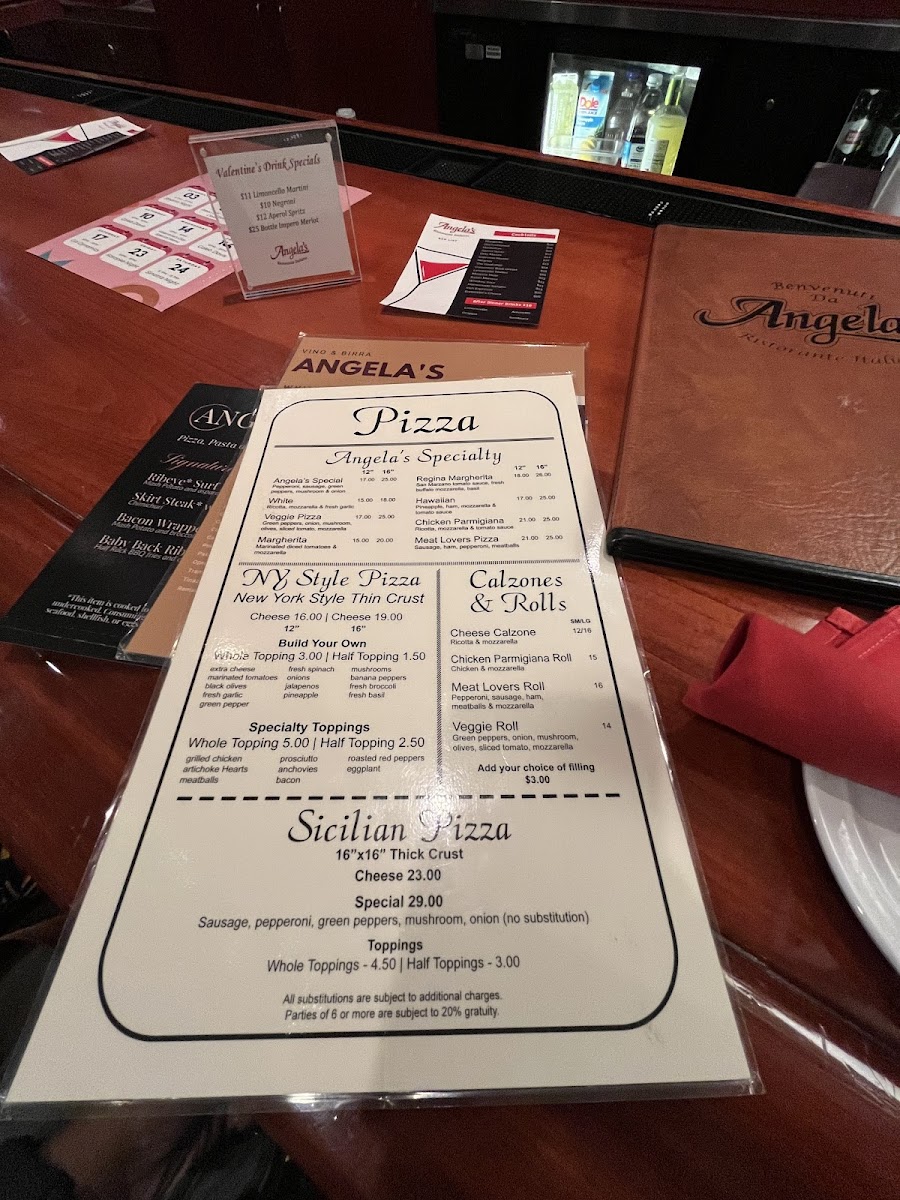 Dole
Valentine's Drink Specials
$11 Limoncello Martini
$10 Negroni
$12 Aperol Spritz
$25 Bottle Impero Merlot
Angela's
03
10
14
17
23
24
Angela's
Cocktails
Benvenuti
Da
Angela
Ristorante Itali
VINO & BIRRA
ANGELA'S
ANG
Pizza, Pasta
Signature
Ribeye* Surf
Skirt Steak*
Chimichurri
Bacon Wrappe
Baby Back Rib
Half Rack BBQ fries and
*This item is cooked
undercooked. Consumi
seafood, shellfish, or eggs
Pizza
Angela's Specialty
12" 16"
Angela's Special 17.00 25.00
Pepperoni, sausage, green
peppers, mushroom & onion
White 15.00 18.00
Ricotta, mozzarella & fresh garlic
Veggie Pizza 17.00 25.00
Green peppers, onion, mushroom,
olives, sliced tomato, mozzarella
Margherita 15.00 20.00
Marinated diced tomatoes &
mozzarella
12" 16"
Regina Margherita 18.00 26.00
San Marzano tomato sauce, fresh
buffalo mozzarella, basil
Hawaiian 17.00 25.00
Pineapple, ham, mozzarella &
tomato sauce
Chicken Parmigiana 21.00 25.00
Ricotta, mozzarella & tomato sauce
Meat Lovers Pizza 21.00 25.00
Sausage, ham, pepperoni, meatballs
NY Style Pizza
New York Style Thin Crust
Cheese 16.00 | Cheese 19.00
12" 16"
Build Your Own
Whole Topping 3.00 | Half Topping 1.50
extra cheese fresh spinach mushrooms
marinated tomatoes onions banana peppers
black olives jalapenos fresh broccoli
fresh garlic pineapple fresh basil
green pepper
Specialty Toppings
Whole Topping 5.00 | Half Topping 2.50
grilled chicken prosciutto roasted red peppers
artichoke Hearts anchovies eggplant
meatballs bacon
Calzones
& Rolls
SM/LG
Cheese Calzone 12/16
Ricotta & mozzarella
Chicken Parmigiana Roll 15
Chicken & mozzarella
Meat Lovers Roll 16
Pepperoni, sausage, ham,
meatballs & mozzarella
Veggie Roll 14
Green peppers, onion, mushroom,
olives, sliced tomato, mozzarella
Add your choice of filling
$3.00
Sicilian Pizza
16"x16" Thick Crust
Cheese 23.00
Special 29.00
Sausage, pepperoni, green peppers, mushroom, onion (no substitution)
Toppings
Whole Toppings - 4.50 | Half Toppings - 3.00
All substitutions are subject to additional charges.
Parties of 6 or more are subject to 20% gratuity.